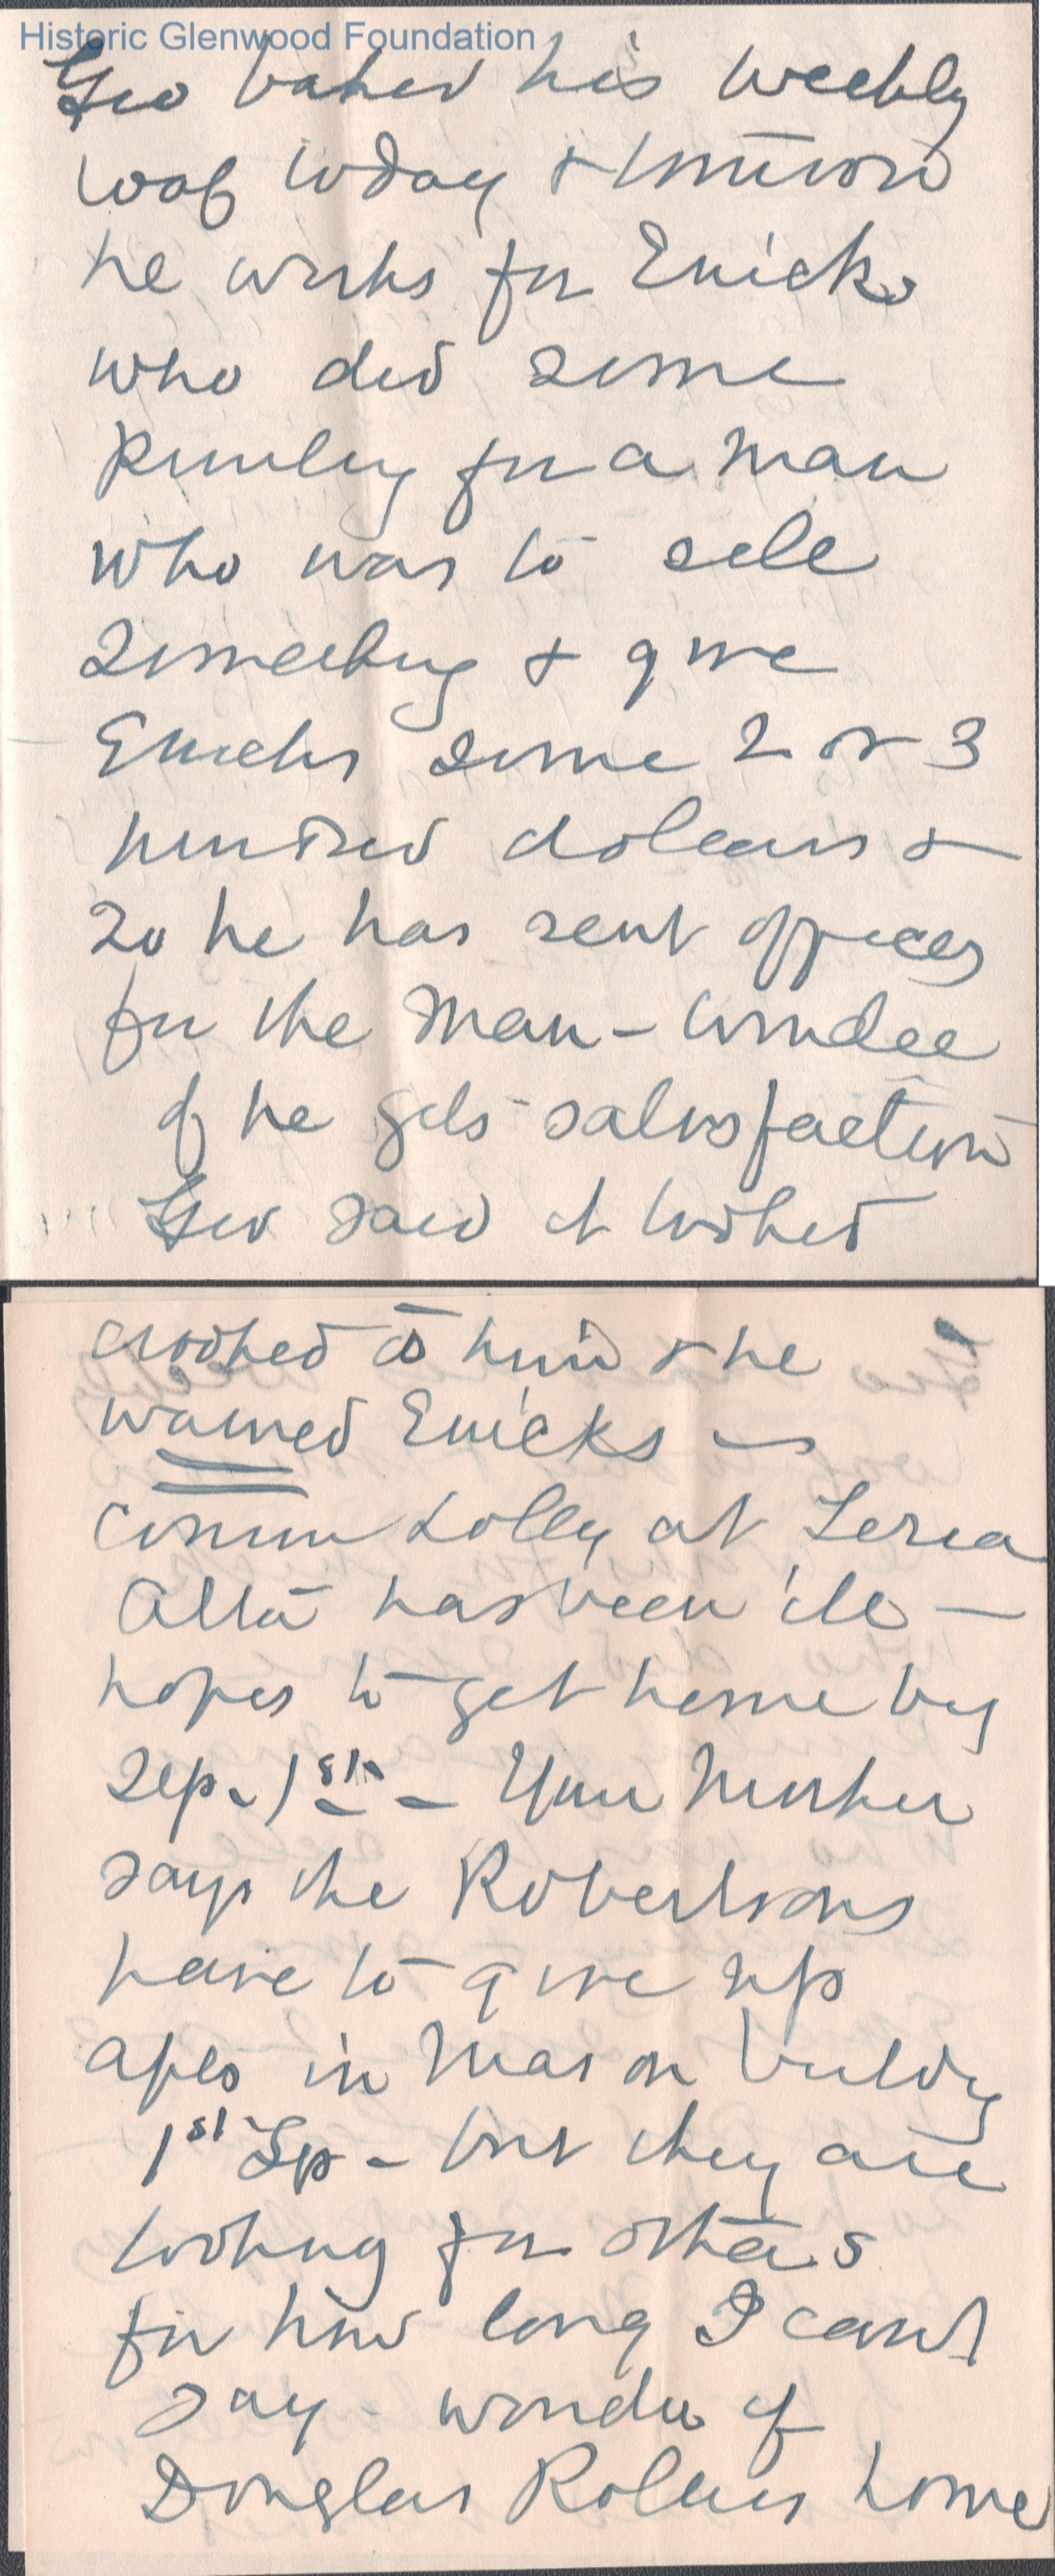 Historic Glenwood Foundation
Geo baked his weekly
loaf today &
he works for Emicks
who did some
for a man
who was to sell
something & give
Emicks some 2 or 3
hundred dollars &
so he has sent officer
for the man - wonder
if he gets satisfaction
Geo said it looked
crooked to him & he
warned Emicks -
Cousin Lolly at Terra
Alta has been ill -
hopes to get home by
Sep. 1st - Your Mother
says the Robertsons
have to give up
apts in Mason buildg
1st Sep - but they are
looking for others
for how long I cant
say - wonder if
Douglas Rollins home